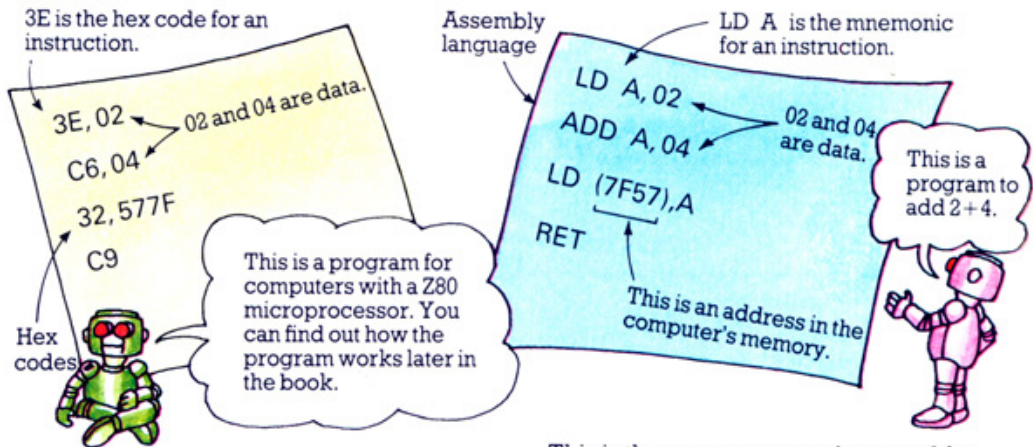 3E is the hex code for an
instruction.
3E, 02
02 and 04 are data.
C6, 04
32, 577F
C9
Hex
codes
This is a program for
computers with a Z80
microprocessor. You
can find out how the
program works later in
the book.
Assembly
language
LD A is the mnemonic
for an instruction.
LD A, 02
ADD A, 04
LD (7F57),A
RET
02 and 04
are data.
This is an address in the
computer's memory.
This is a
program to
add 2+4.